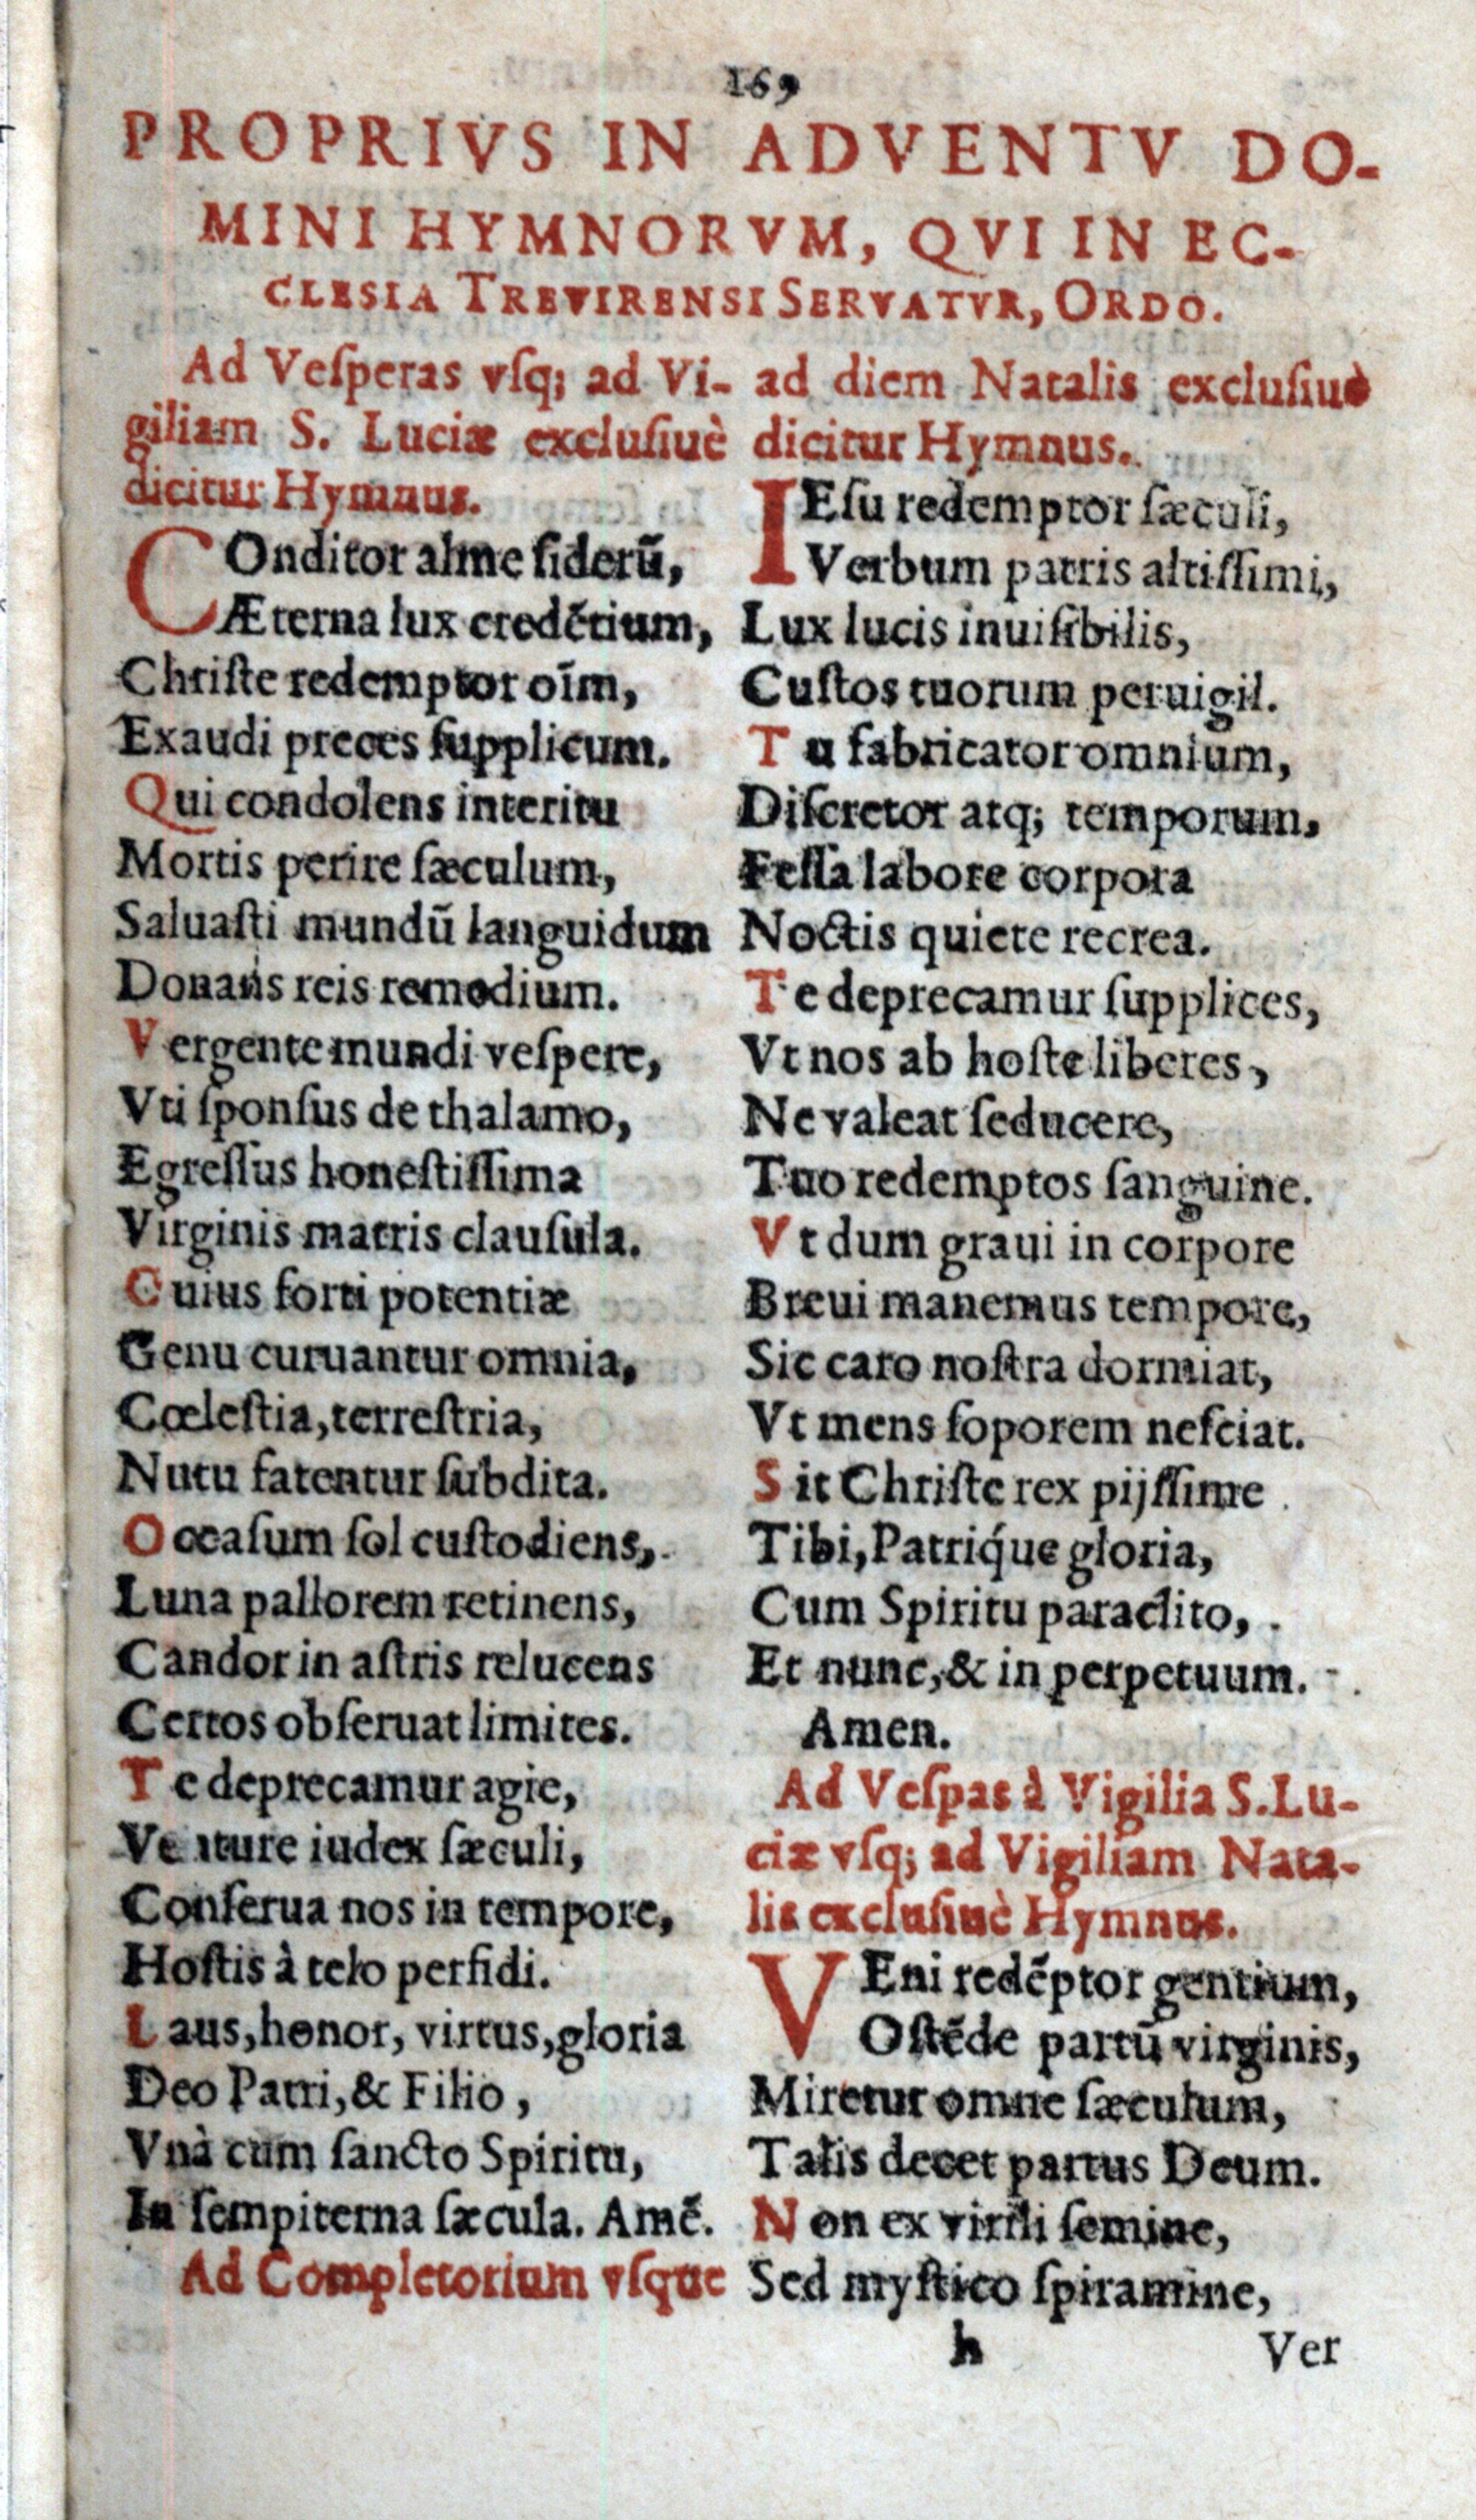 169
PROPRIVS IN ADVENTV DO-
MINI HYMNORVM, QVI IN EC-
CLESIA TREVIRENSI SERVATVR, ORDO.
Ad Veſperas vſq; ad Vi-
giliam S. Luciæ excluſiuè
dicitur Hymnus.
COnditor alme ſiderū,
Æterna lux credētium,
Chriſte redemptor oīm,
Exaudi preces ſupplicum.
Qui condolens interitu
Mortis perire ſæculum,
Saluaſti mundū languidum
Donans reis remedium.
Vergente mundi veſpere,
Vti ſponſus de thalamo,
Egreſſus honeſtiſſima
Virginis matris clauſula.
Cuius forti potentiæ
Genu curuantur omnia,
Cœleſtia, terreſtria,
Nutu fatentur ſubdita.
Occaſum ſol cuſtodiens,
Luna pallorem retinens,
Candor in aſtris relucens
Certos obſeruat limites.
Te deprecamur agie,
Venture iudex ſæculi,
Conſerua nos in tempore,
Hoſtis à telo perfidi.
Laus, honor, virtus, gloria
Deo Patri, & Filio,
Vnà cum ſancto Spiritu,
In ſempiterna ſæcula. Amē.
Ad Completorium vſque
ad diem Natalis excluſiuè
dicitur Hymnus.
IEſu redemptor ſæculi,
Verbum patris altiſſimi,
Lux lucis inuiſibilis,
Cuſtos tuorum peruigil.
Tu fabricator omnium,
Diſcretor atq; temporum,
Feſſa labore corpora
Noctis quiete recrea.
Te deprecamur ſupplices,
Vt nos ab hoſte liberes,
Ne valeat ſeducere,
Tuo redemptos ſanguine.
Vt dum graui in corpore
Breui manemus tempore,
Sic caro noſtra dormiat,
Vt mens ſoporem neſciat.
Sit Chriſte rex pijſſime
Tibi, Patriq́ue gloria,
Cum Spiritu paraclito,
Et nunc, & in perpetuum.
Amen.
Ad Veſpas à Vigilia S. Lu-
ciæ vſq; ad Vigiliam Nata-
lis excluſiuè Hymnus.
VEni redēptor gentium,
Oſtēde partū virginis,
Miretur omne ſæculum,
Talis decet partus Deum.
Non ex virili ſemine,
Sed myſtico ſpiramine,
h Ver